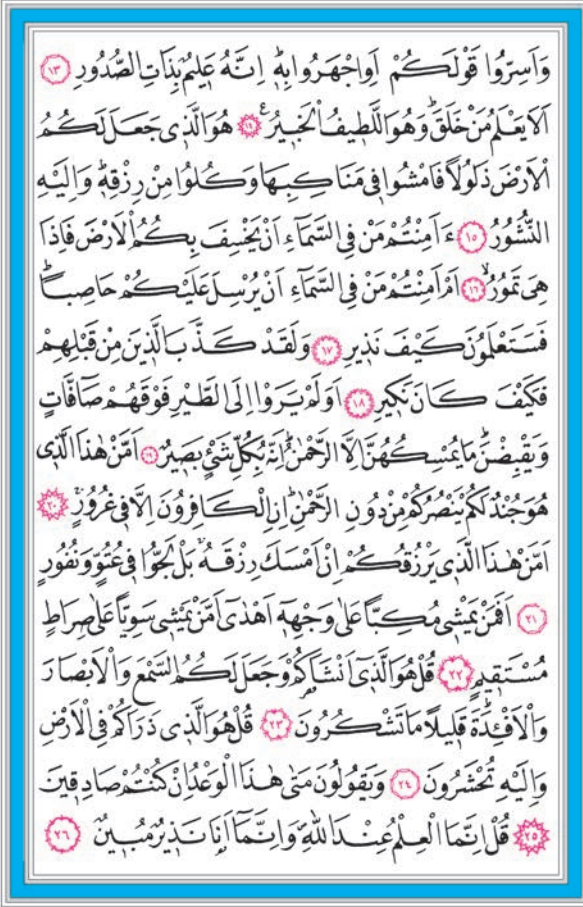 وَاَسِرُّوا قَوْلَكُمْ اَوِ اجْهَرُوا بِهٖۜ اِنَّهُ عَلٖيمٌ بِذَاتِ الصُّدُورِ ﴿١٣﴾
اَلَا يَعْلَمُ مَنْ خَلَقَۜ وَهُوَ اللَّطٖيفُ الْخَبٖيرُ۟ ﴿١٤﴾ هُوَ الَّذٖي جَعَلَ لَكُمُ
الْاَرْضَ ذَلُولاً فَامْشُوا فٖي مَنَاكِبِهَا وَكُلُوا مِنْ رِزْقِهٖۜ وَاِلَيْهِ
النُّشُورُ ﴿١٥﴾ ءَاَمِنْتُمْ مَنْ فِي السَّمَٓاءِ اَنْ يَخْسِفَ بِكُمُ الْاَرْضَ فَاِذَا
هِيَ تَمُورُۙ ﴿١٦﴾ اَمْ اَمِنْتُمْ مَنْ فِي السَّمَٓاءِ اَنْ يُرْسِلَ عَلَيْكُمْ حَاصِباًۜ
فَسَتَعْلَمُونَ كَيْفَ نَذٖيرِ ﴿١٧﴾ وَلَقَدْ كَذَّبَ الَّذٖينَ مِنْ قَبْلِهِمْ
فَكَيْفَ كَانَ نَكٖيرِ ﴿١٨﴾ اَوَلَمْ يَرَوْا اِلَى الطَّيْرِ فَوْقَهُمْ صَٓافَّاتٍ
وَيَقْبِضْنَۜ مَا يُمْسِكُهُنَّ اِلَّا الرَّحْمٰنُۜ اِنَّهُ بِكُلِّ شَيْءٍ بَصٖيرٌ ﴿١٩﴾ اَمَّنْ هٰذَا الَّذٖي
هُوَ جُنْدٌ لَكُمْ يَنْصُرُكُمْ مِنْ دُونِ الرَّحْمٰنِۜ اِنِ الْكَافِرُونَ اِلَّا فٖي غُرُورٍۚ ﴿٢٠﴾
اَمَّنْ هٰذَا الَّذٖي يَرْزُقُكُمْ اِنْ اَمْسَكَ رِزْقَهُۚ بَلْ لَجُّوا فٖي عُتُوٍّ وَنُفُورٍ
﴿٢١﴾ اَفَمَنْ يَمْشٖي مُكِبّاً عَلٰى وَجْهِهٖٓ اَهْدٰٓى اَمَّنْ يَمْشٖي سَوِياًّ عَلٰى صِرَاطٍ
مُسْتَقٖيمٍ ﴿٢٢﴾ قُلْ هُوَ الَّذٖٓي اَنْشَاَكُمْ وَجَعَلَ لَكُمُ السَّمْعَ وَالْاَبْصَارَ
وَالْاَفْـِٔدَةَۜ قَلٖيلاً مَا تَشْكُرُونَ ﴿٢٣﴾ قُلْ هُوَ الَّذٖي ذَرَاَكُمْ فِي الْاَرْضِ
وَاِلَيْهِ تُحْشَرُونَ ﴿٢٤﴾ وَيَقُولُونَ مَتٰى هٰذَا الْوَعْدُ اِنْ كُنْتُمْ صَادِقٖينَ
﴿٢٥﴾ قُلْ اِنَّمَا الْعِلْمُ عِنْدَ اللّٰهِۖ وَاِنَّمَٓا اَنَا۬ نَذٖيرٌ مُبٖينٌ ﴿٢٦﴾